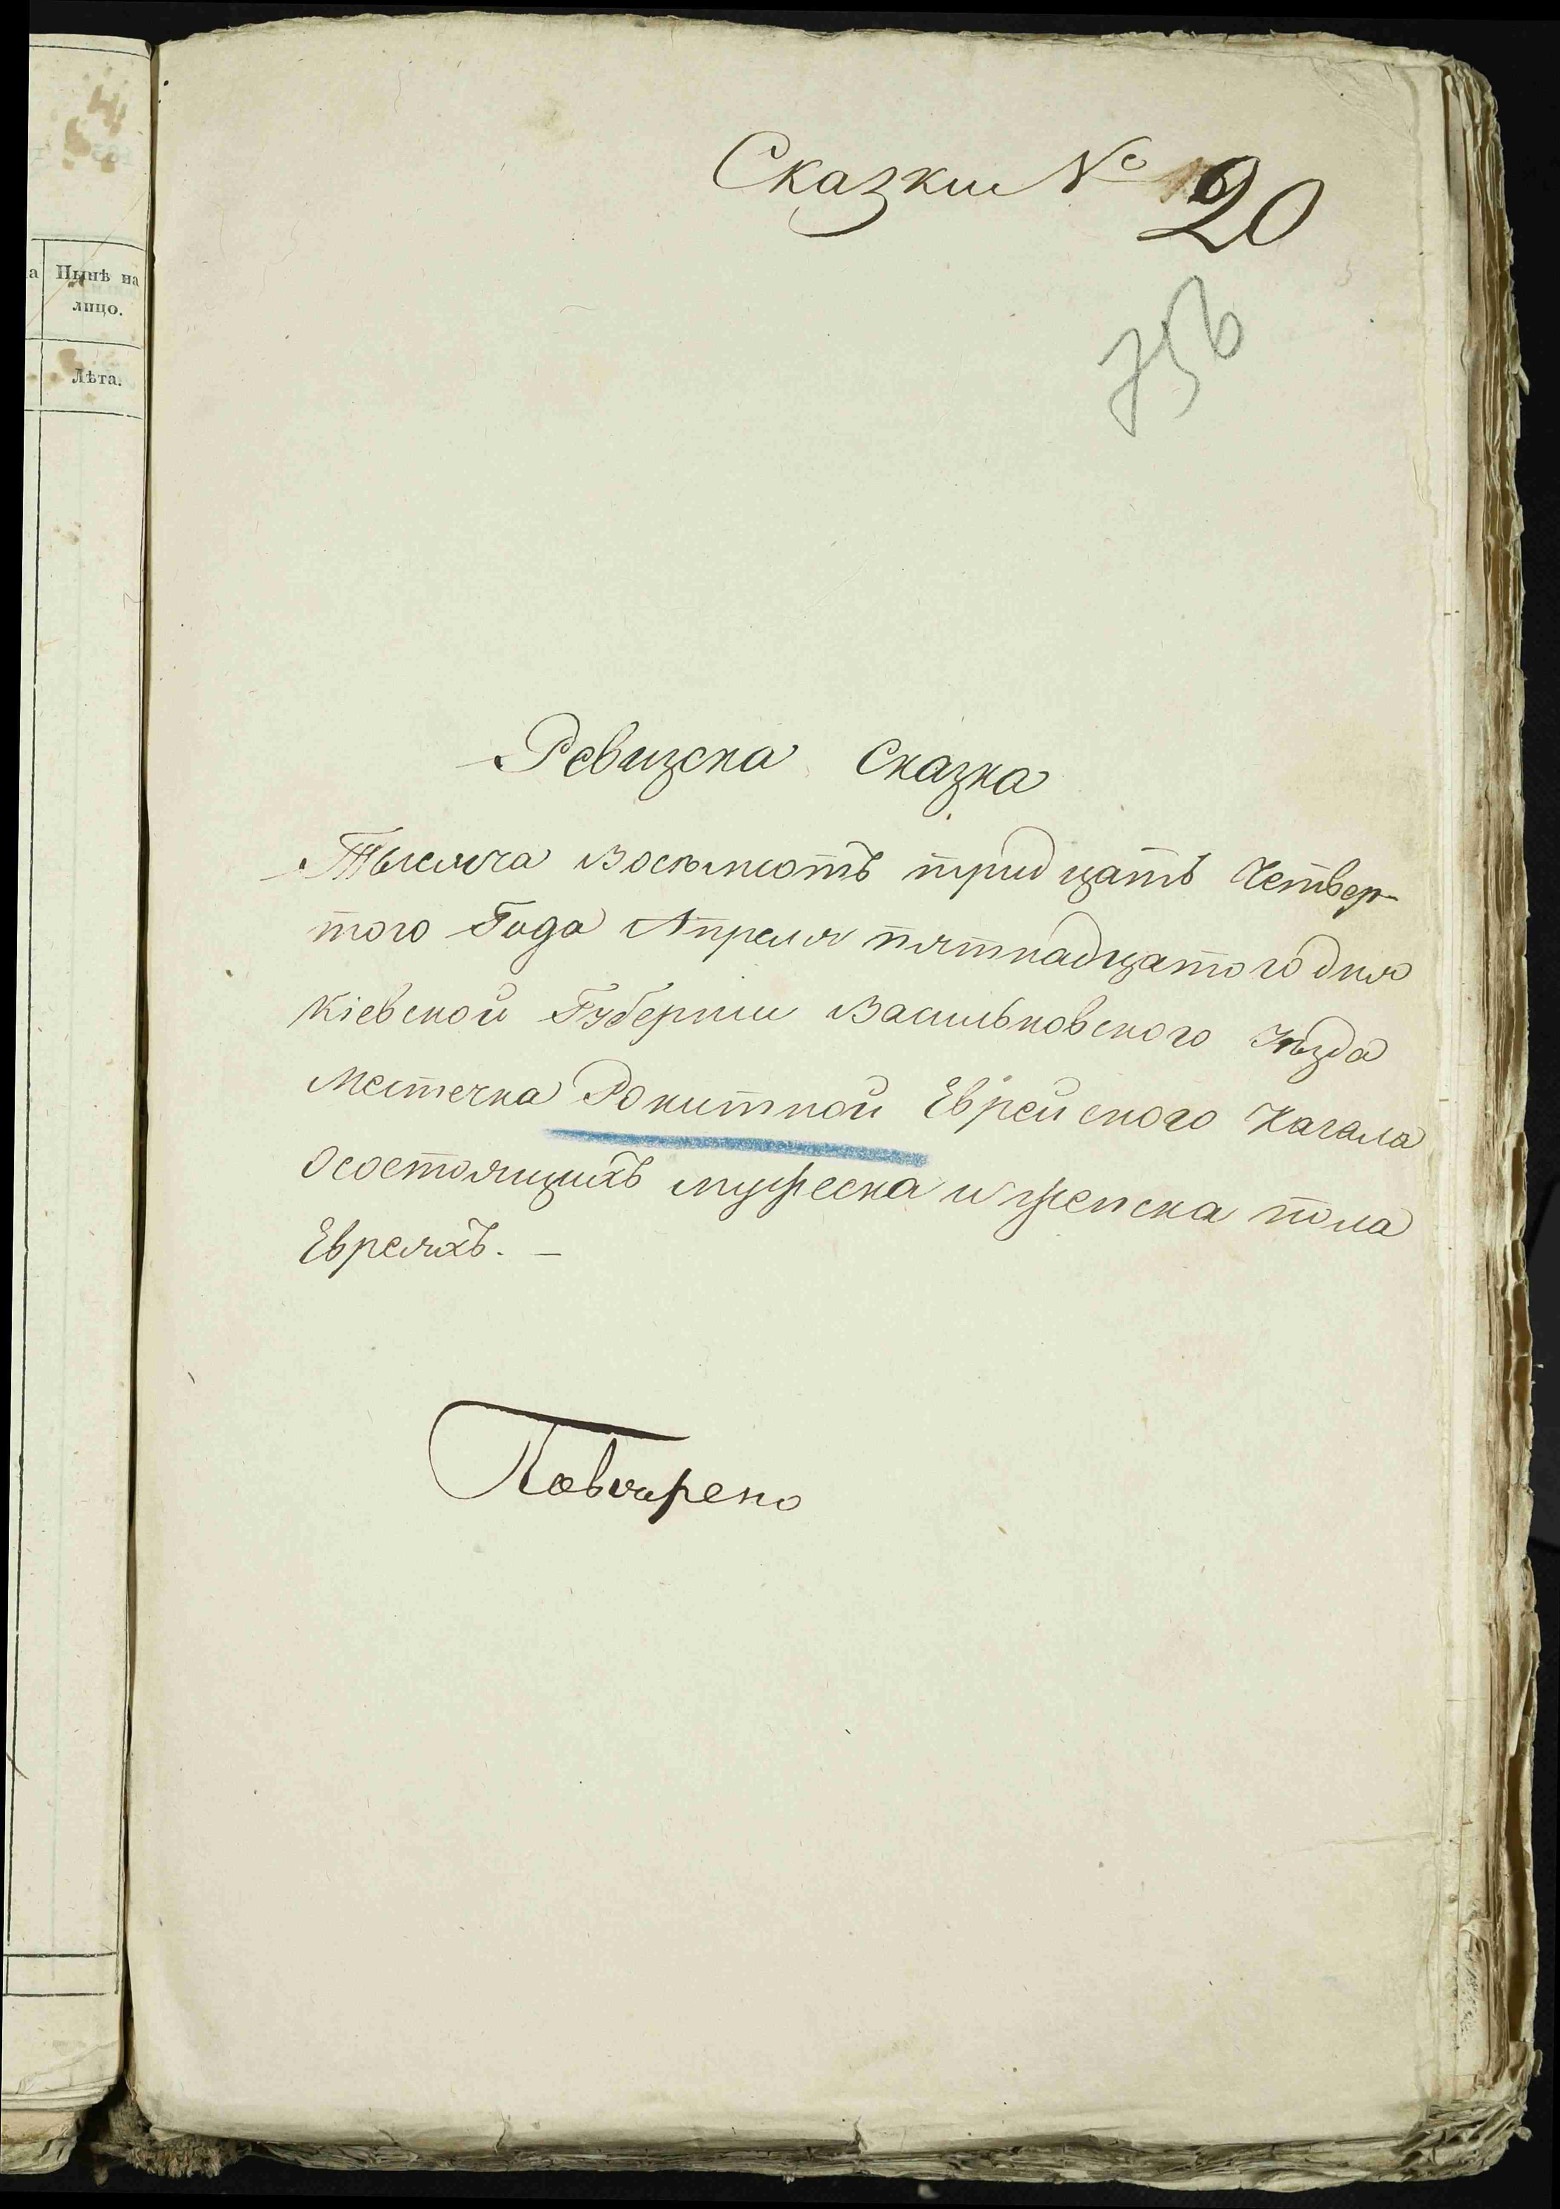 а
Нынѣ на
лицо.
Лѣта.
Сказки № 20
756
Ревизска Сказка
Тысяча Восемьсотъ тридцать Четвер-
того Года Апреля пятнадцатого дня
Кіевской Губерніи Васильковского Уѣзда
Местечка Рокитной Еврейского Кагала
осостоящихъ мужеска и женска пола
Евреяхъ. —